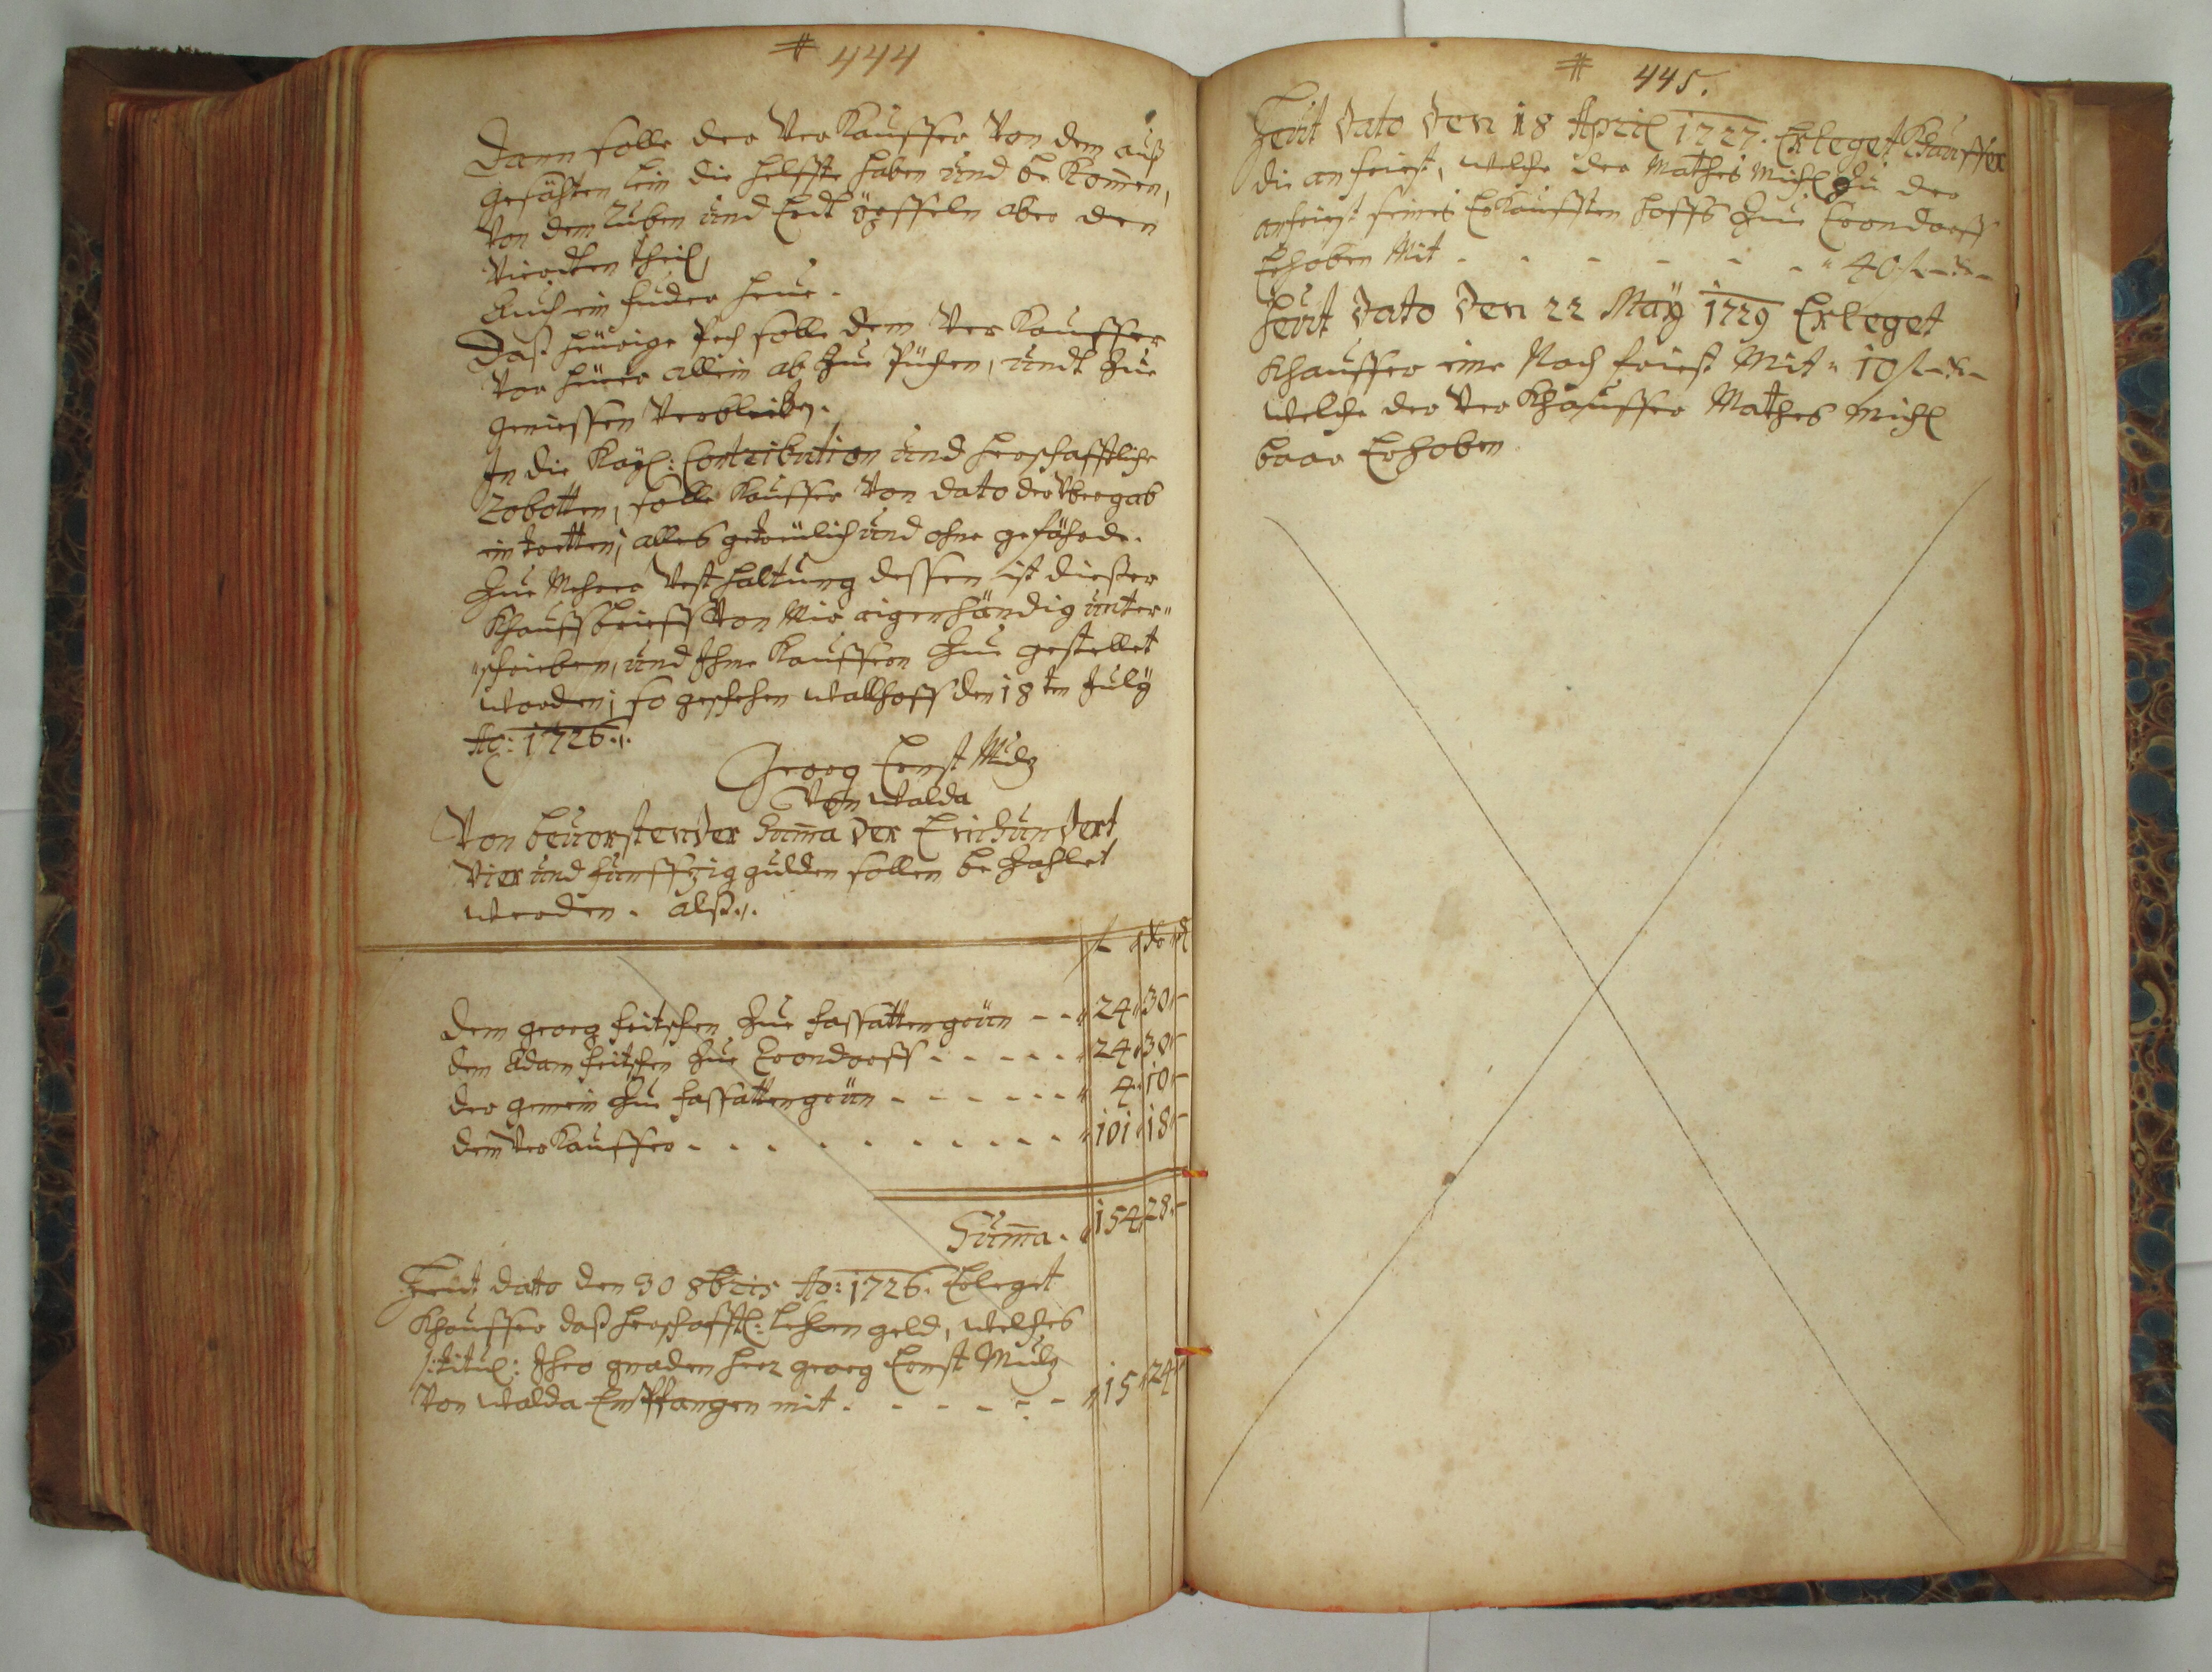 # 444
Dann solle der Verkauffer von dem auß
gesähten lein die helffte haben und bekom̄en,
von dem Ruben und Erdt öpffeln aber den
Vierdten theil,
Auch ein fuder heue.
Daß heürige Pech solle dem Verkauffer
vor heüer allein ab zue Püchen, undt zue
geniessen Verbleiben.
In die Kayl: Contribution und herschafftliche
Robotten, solle Kauffer von dato der Vbergab
ein tretten, alles getreülich und ohne gefährde.
Zue Mehrer Vesthaltung dessen ist dießer
Khauffbrieff von Mir aigenhändig unter„
„schrieben, und Ihme Kauffern zue gestellet
worden; so geschehen wallhoff den 18ten July
Ao: 1726.
Georg Ernst Mulz
Von Walda
Von bevorstender Sum̄a der Einhundert
Vier und funffzig gulden sollen bezahlet
werden. alß.
fl xr d
Dem georg fritschen zue fassattengrün - - 24 30 -
dem Adam fritschen zue Cronndorff - - - - - 24 30 -
der gemein zue fassattengrün - - - - - - 4 10 -
dem Verkauffer - - - - - - - - - - - 101 18 -
Sum̄a. 154 28 -
Heut dato den 30 8bris Ao: 1726. Erleget
Khauffer daß herschafftl: lehen geld, welches
/:titul: Ihro gnaden herr georg Ernst Mulz
Von Walda Empfangen mit - - - - - - 15 24 -
# 445.
Heut dato den 18 April 1727. Erleget Khauffer
die anfrist, welche der Mathes Michl zu der
anfrist seines Erkaufften hoffs zue Cronndorff
Erhoben Mit - - - - - - 40 fl - xr -
Heut dato den 22 May 1729 Erleget
Khauffer eine Nach frist Mit 10 fl - xr -
welche der Verkhauffer Mathes Michl
baar Erhoben